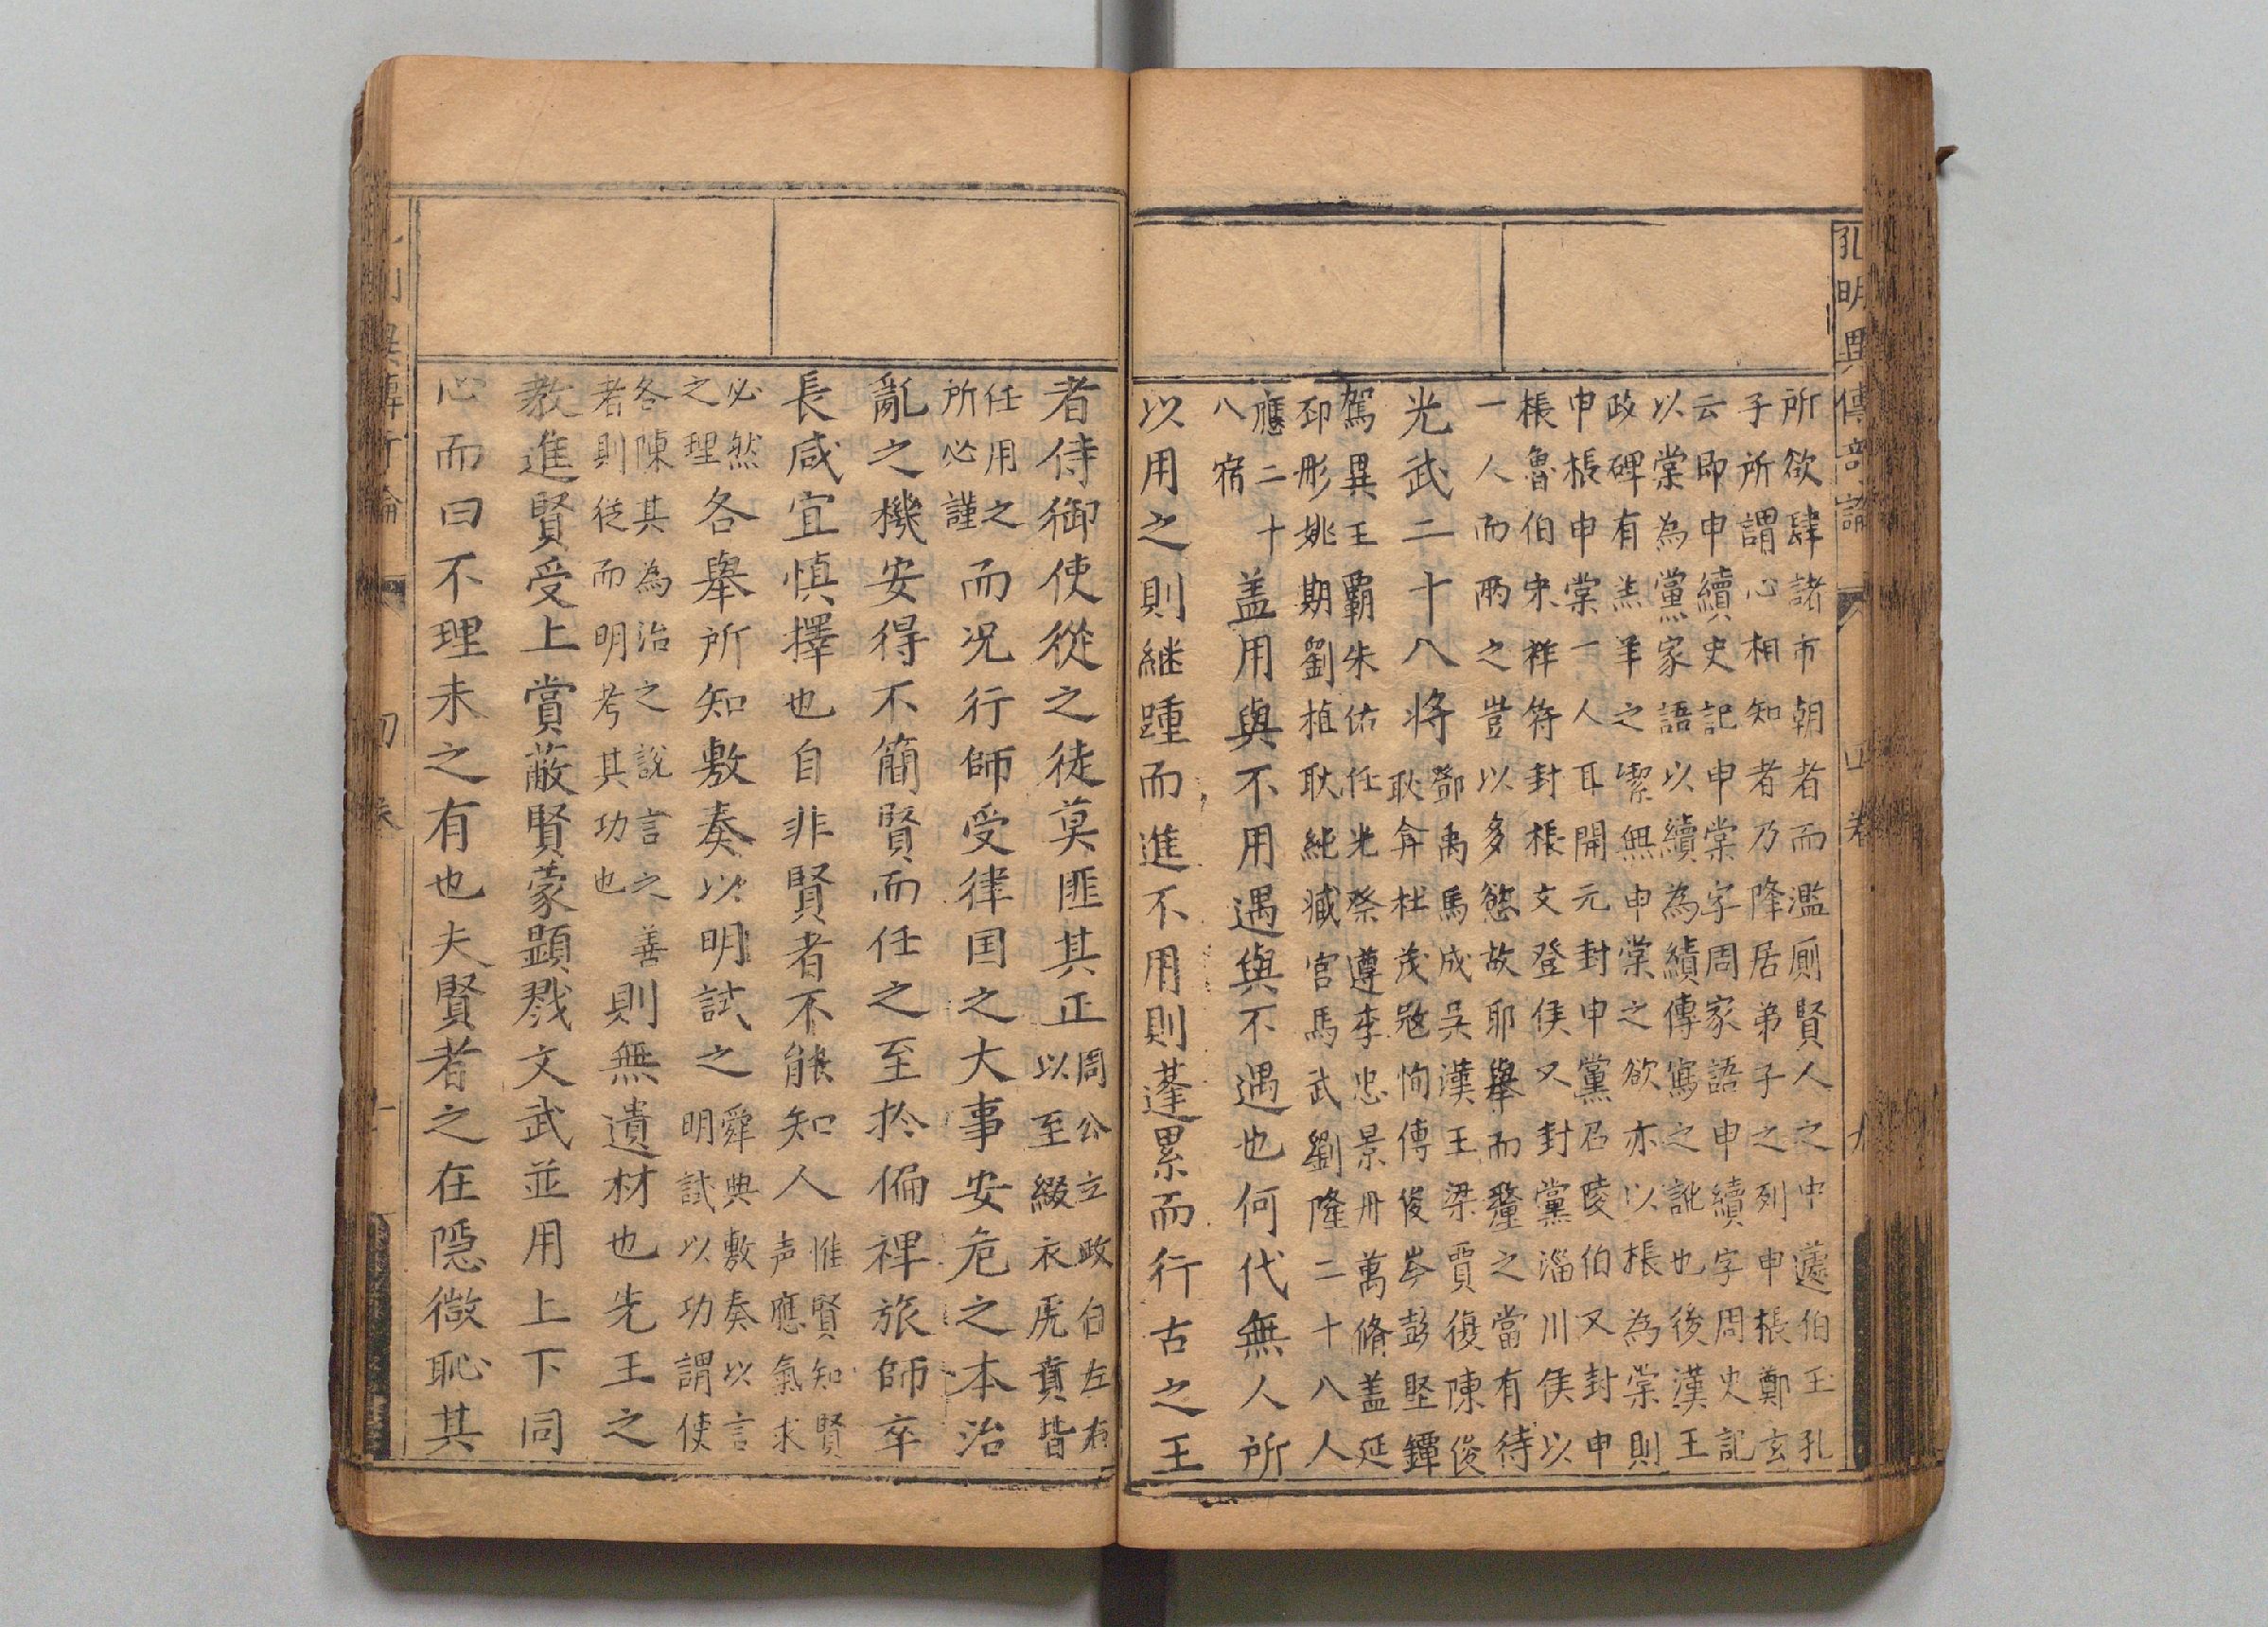 所欲肆諸市朝者而濫厠賢人之中蘧伯玉孔
子所謂心相知者乃降居弟子之列申棖鄭玄
云即申續史記申棠字周家語申續字周史記
以棠為黨家語以續為績傳寫之訛也後漢王
政碑有羔羊之絜無申棠之欲亦以棖為棠則
申棖申棠一人耳開元封申黨召陵伯又封申
棖魯伯宋祥符封棖文登侯又封黨淄川侯以
一人而兩之豈以多慾故耶舉而釐之當有待
光武二十八将
鄧禹馬成吳漢王梁賈復陳俊
耿弇杜茂冦恂傳俊岑彭堅鐔
駕異王覇朱佑任光祭遵李忠景丹萬脩盖延
邳彤姚期劉植耿純臧宮馬武劉隆二十八人
應二十
八宿
盖用與不用遇與不遇也何代無人所
以用之則継踵而進不用則蓬累而行古之王
者侍御使從之徒莫匪其正
周公立政自左右
以至綴衣虎賁皆
任用之
所必謹
而况行師受律国之大事安危之本治
亂之機安得不簡賢而任之至扵偏裨旅師卒
長咸宜慎擇也自非賢者不能知人
惟賢知賢
声應氣求
必然
之理
各舉所知敷奏以明試之
舜典敷奏以言
明試以功謂使
各陳其為治之說言之善
者則從而明考其功也
則無遺材也先王之
教進賢受上賞蔽賢蒙顕戮文武並用上下同
心而曰不理未之有也夫賢者之在隠微恥其